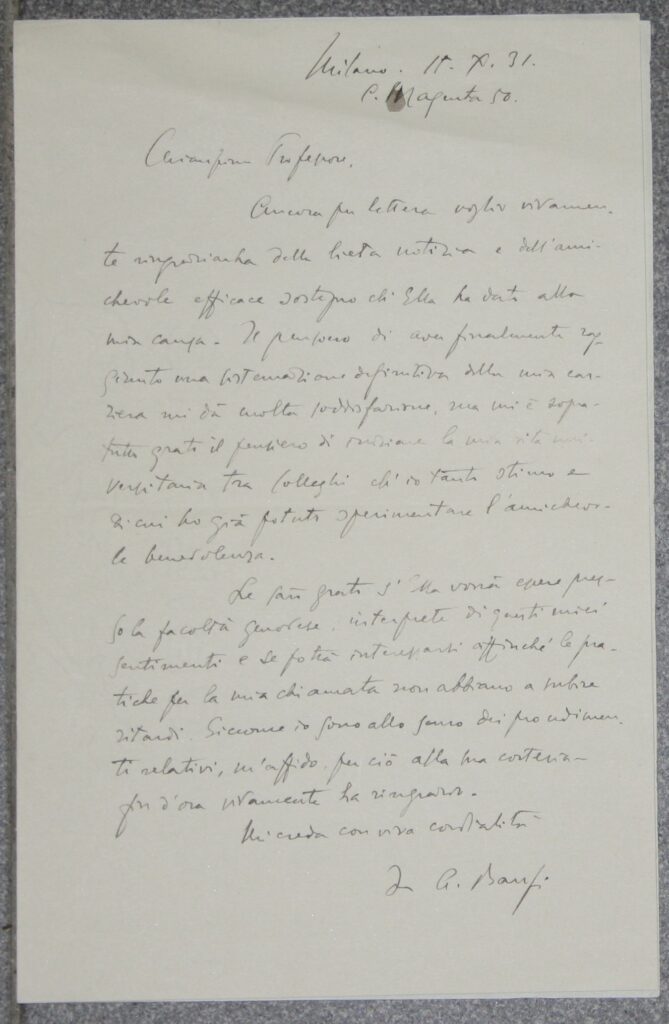 Milano. 15. X. 31.
C. Magenta 50.
Chiarissimo Professore,
Ancora per lettera voglio vivamen-
te ringraziarLa della lieta notizia e dell'ami-
chevole efficace sostegno ch'Ella ha dato alla
mia causa. Il pensiero di aver finalmente rag-
giunto una sistemazione definitiva della mia car-
riera mi dà molta soddisfazione, ma mi è sopra-
tutto grato il pensiero di iniziare la mia vita uni-
versitaria tra Colleghi ch'io tanto stimo e
di cui ho già potuto sperimentare l'amichevo-
le benevolenza.
Le sarò grato s'Ella vorrà essere pres-
so la facoltà genovese interprete di questi miei
sentimenti e se potrà interessarsi affinché le pra-
tiche per la mia chiamata non abbiano a subire
ritardi. Siccome io sono allo scuro dei procedimen-
ti relativi, m'affido perciò alla sua cortesia
fin d'ora vivamente La ringrazio.
Mi creda con viva cordialità
A. Banfi